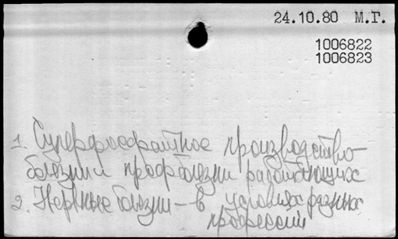 24.10.80 М.Г.
1006822
1006823
1. Суперфосфатное производство
болезни и профболезни работающих
2. Нервные болезни – в условиях разных
профессий